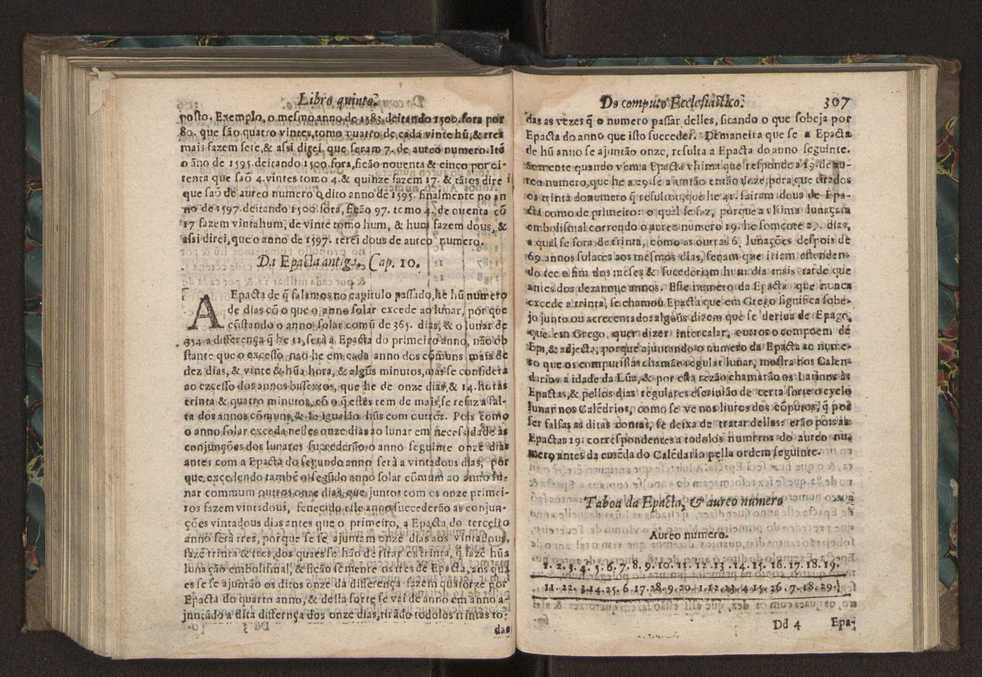 Libro quinto.
posto. Exemplo, o mesmo anno de 1583. deitando 1500. fora por
80. que são quatro vintes, tomo quatro de cada vinte hũ, & tres
mais fazem sete, & assi digei, que seram 7. de aureo numero. Itẽ
o ãno de 1595. deitando 1500 fora, ficão nouenta & cinco por oi-
tenta que saõ 4. vintes tomo 4. & quinze fazem 17. & tãtos dire i
que saõ de aureo numero o dito anno de 1595. finalmente no an
no de 1597. deitando 1500. fora, ficão 97. tomo 4. de ouenta cõ
17 fazem vintahum, de vinte tomo hum, & hum fazem dous, &
assi direi, que o anno de 1597. terei dous de aureo numero.
Da Epacta antiga, Cap. 10.
A Epacta de q̃ falamos no capitulo passado, he hũ numero
de dias cũ o que o anno solar excede ao lunar, por que
cõstando o anno solar comũ de 365. dias, & o lunar de
354 a differença q̃ he 11, serà a Epacta do primeiro anno, não ob
stante que o excesso, não he em cada anno dos cõmuns mais de
dez dias, & vinte & hũa hora, & algũs minutos, mas se confidera
ao excesso dos annos bissextos, que he de onze dias, & 14. horas
trinta & quatro minutos, cõ o q̃ estes tem de mais, se refaz a fal-
ta dos annos cõmuns, & se igualão hũs com outros. Pois como
o anno solar exceda nestes onze dias ao lunar em necessidade as
conjunções dos lunares succederão o anno seguinte onze dias
antes com a Epacta do segundo anno serà a vintadous dias, por
que, excedendo tambẽ o segũdo anno solar cõmum ao anno lu-
nar commum outros onze dias, que juntos com os onze primei-
ros fazem vintadous, fenecido este anno succederão as conjun-
ções vintadous dias antes que o primeiro, a Epacta do terceiro
anno serà tres, porque se se ajuntam onze dias aos vintadous,
fazẽ trinta & tres, dos quaes se hão de tirar os trinta, q̃ fazẽ hũa
lunação embolismal, & ficão somente os tres de Epacta, aos qua
es se se ajuntão os ditos onze da differença fazem quatorze por
Epacta do quarto anno, & desta sorte se vai de anno em anno a-
juntãdo a dita differença dos onze dias, tirãdo todolos trintas to-
das
Do computo Ecclesiastico.
307
das as vezes q̃ o numero passar delles, ficando o que sobeja por
Epacta do anno que isto succeder. De maneira que se a Epacta
de hũ anno se ajuntão onze, resulta a Epacta do anno seguinte.
Somente quando vem a Epacta vltima que responde a 19 de au-
reo numero, que he a 29. se ajuntão então doze, pera que tirados
os trinta do numero q̃ resulta, que he 41. sairam doua de Epa-
cta como de primeiro: o qual se faz, porque a vltima lunação
embolismal correndo o aureo numero 19. he somente 29. dias,
a qual se fora de trinta, como as outras 6. lunações despois de
69 annos solares aos mesmos dias, senam que iriem estenden-
do tee o fim dos meses & succederiam hum dia mais tarde que
antes dos dezanoue annos. Este numero da Epacta que nunca
excede a trinta, se chamou Epacta que em Grego significa sobe-
jo junto ou acrecentado algũs dizem que se deriua de Epago,
que em Grego, quer dizer intercalar, outros o compoem de
Epi, & adjecta, porque ajuntando o numero da Epacta ao nume-
ro que os computistas chamão regular lunar, mostra nos Calen-
darios a idade da Lũa, & por esta rezão chamarão os Latinos às
Epactas, & pellos dias regulares escriuião de certa sorte o cyclo
lunar nos Calẽdrios, como se ve nos liuros dos cõputos, q̃ por
ser falsas as ditas contas, se deixa de tratar dellas: erão pois as
Epactas 19. correspondentes a todolos numeros do aureo nu-
mero antes da emẽda do Calẽdario pella ordem seguinte.
Taboa da Epacta, & aureo numero
Aureo numero.
1. 2. 3. 4. 5. 6. 7. 8. 9. 10. 11. 12. 13. 14. 15. 16. 17. 18. 19.
11. 22. 3. 14. 25. 6. 17. 28. 9. 20. 1. 12. 23. 4. 15. 26. 7. 18. 29.
Dd 4
Epa-